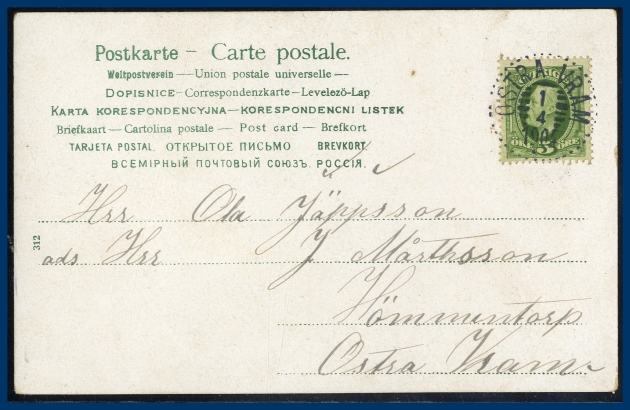 Postkarte – Carte postale.
Weltpostverein — Union postale universelle —
DOPISNICE — Correspondenzkarte — Levelező-Lap
KARTA KORESPONDENCYJNA — KORESPONDENCNI LISTEK
Briefkaart — Cartolina postale — Post card — Brefkort
TARJETA POSTAL. ОТКРЫТОЕ ПИСЬМО BREVKORT.
ВСЕМІРНЫЙ ПОЧТОВЫЙ СОЮЗЪ. РОССІЯ.
ÖSTRA VRAM
1
4
ÖRE 5 ÖRE
Hrr Ola Jäppsson
ads Hrr J Mårthsson
Hömmentorp
Ostra Vram
312